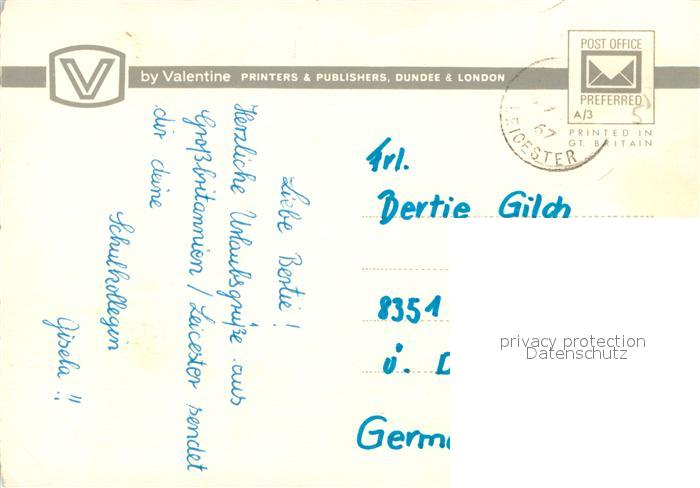 by Valentine PRINTERS & PUBLISHERS, DUNDEE & LONDON
POST OFFICE
PREFERRED
A/3
PRINTED IN
GT. BRITAIN
LEICESTER
67
Liebe Bertie!
Herzliche Urlaubsgrüße aus
Großbritannien / Leicester sendet
dir deine
Schulkollegin
Gisela!!
Frl.
Bertie Gilch
8351
ü. D
Germa
privacy protection
Datenschutz